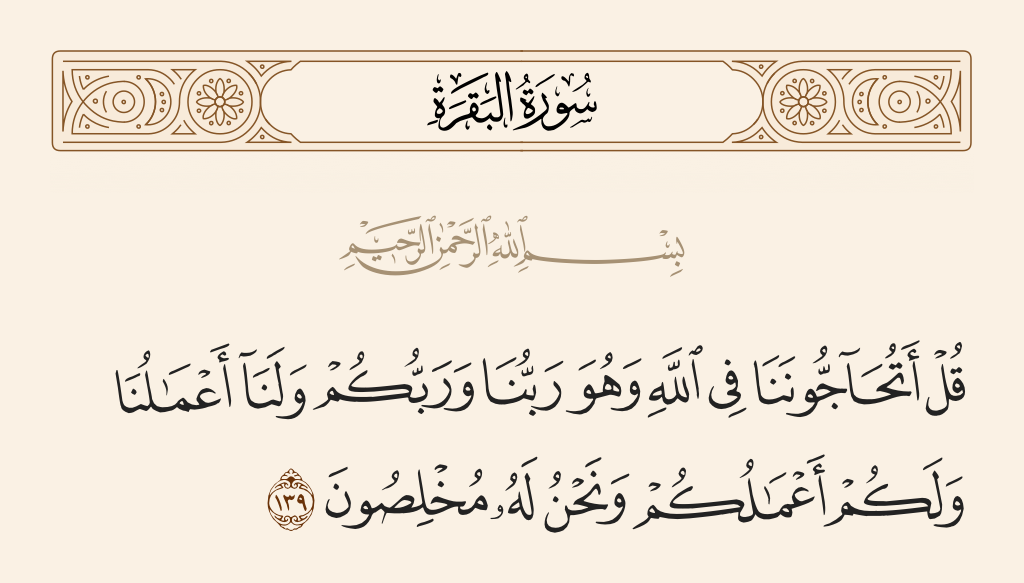 سُورَةُ البَقَرَةِ
بِسْمِ ٱللَّهِ ٱلرَّحْمَٰنِ ٱلرَّحِيمِ
قُلْ أَتُحَآجُّونَنَا فِى ٱللَّهِ وَهُوَ رَبُّنَا وَرَبُّكُمْ وَلَنَآ أَعْمَٰلُنَا
وَلَكُمْ أَعْمَٰلُكُمْ وَنَحْنُ لَهُۥ مُخْلِصُونَ ١٣٩